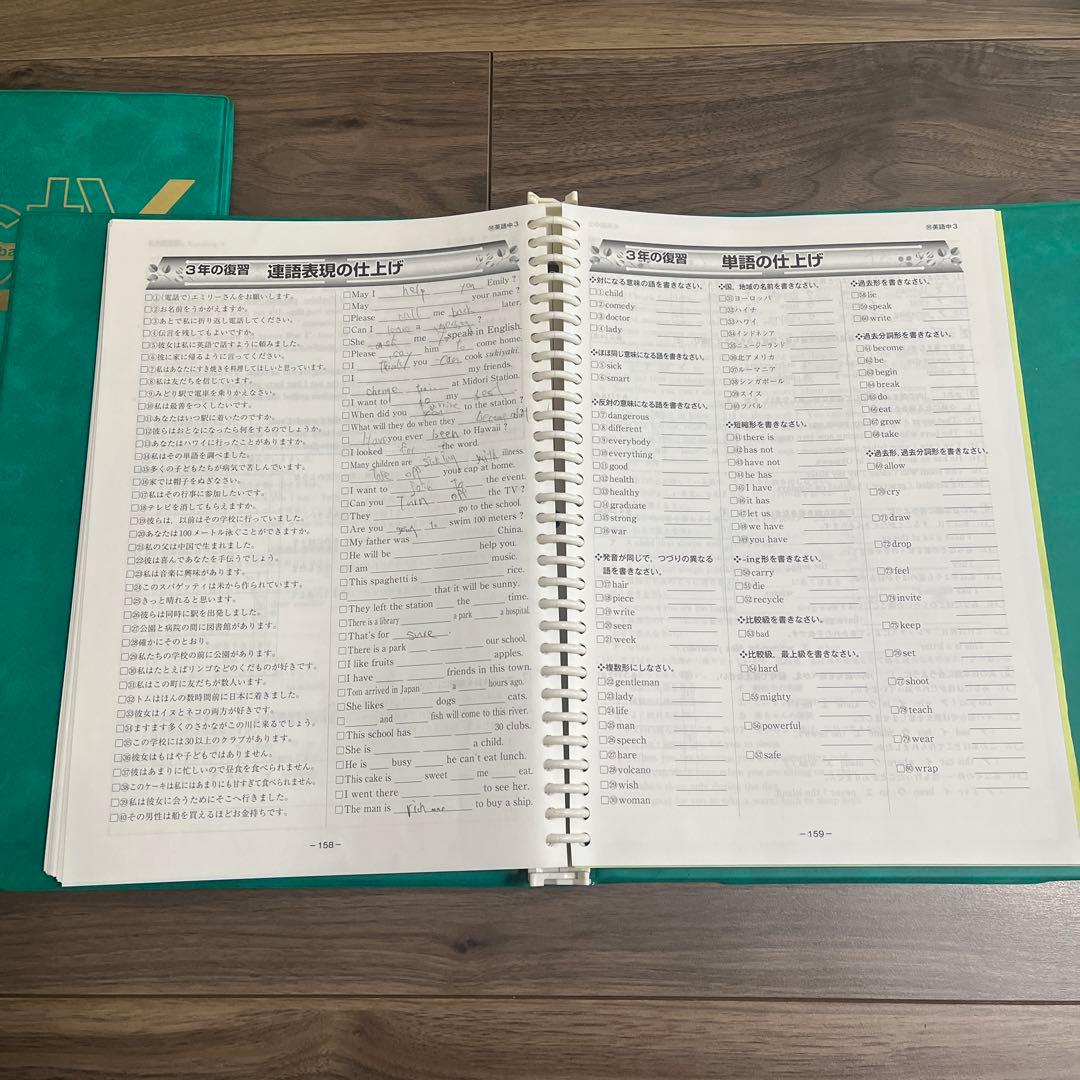 ㊥英語中3
3年の復習 連語表現の仕上げ
□①(電話で)エミリーさんをお願いします。
□②お名前をうかがえますか。
□③あとで私に折り返し電話してください。
□④伝言を残してもよいですか。
□⑤彼女は私に英語で話すように頼みました。
□⑥彼に家に帰るように言ってください。
□⑦私はあなたにすき焼きを料理してほしいと思っています。
□⑧私は友だちを信じています。
□⑨みどり駅で電車を乗りかえなさい。
□⑩私は最善をつくしたいです。
□⑪あなたはいつ駅に着いたのですか。
□⑫彼らはおとなになったら何をするのでしょうか。
□⑬あなたはハワイに行ったことがありますか。
□⑭私はその単語を調べました。
□⑮多くの子どもたちが病気で苦しんでいます。
□⑯家では帽子をぬぎなさい。
□⑰私はその行事に参加したいです。
□⑱テレビを消してもらえますか。
□⑲彼らは、以前はその学校に行っていました。
□⑳あなたは100メートル泳ぐことができますか。
□㉑私の父は中国で生まれました。
□㉒彼は喜んであなたを手伝うでしょう。
□㉓私は音楽に興味があります。
□㉔このスパゲッティは米から作られています。
□㉕きっと晴れると思います。
□㉖彼らは同時に駅を出発しました。
□㉗公園と病院の間に図書館があります。
□㉘確かにそのとおり。
□㉙私たちの学校の前に公園があります。
□㉚私はたとえばリンゴなどのくだものが好きです。
□㉛私はこの町に友だちが数人います。
□㉜トムはほんの数時間前に日本に着きました。
□㉝彼女はイヌとネコの両方が好きです。
□㉞ますます多くのさかながこの川に来るでしょう。
□㉟この学校には30以上のクラブがあります。
□㊱彼女はもはや子どもではありません。
□㊲彼はあまりに忙しいので昼食を食べられません。
□㊳このケーキは私にはあまりにも甘すぎて食べられません。
□㊴私は彼女に会うためにそこへ行きました。
□㊵その男性は船を買えるほどお金持ちです。
□May I help you Emily ?
□May your name ?
□Please call me back later.
□Can I leave a ?
□She ask me to speak in English.
□Please say him to come home.
□I you cook sukiyaki.
□I my friends.
□change train at Midori Station.
□I want to do my best
□When did you arrive to the station ?
□What will they do when they
□Have you ever been to Hawaii ?
□I looked for the word.
□Many children are illness.
□take off your cap at home.
□I want to join to the event.
□Can you Turn off the TV ?
□They go to the school.
□Are you swim 100 meters ?
□My father was China.
□He will be help you.
□I am music.
□This spaghetti is rice.
□ that it will be sunny.
□They left the station the time.
□There is a library a park a hospital.
□That's for sure.
□There is a park our school.
□I like fruits apples.
□I have friends in this town.
□Tom arrived in Japan a hours ago.
□She likes dogs cats.
□ and fish will come to this river.
□This school has 30 clubs.
□She is a child.
□He is busy he can't eat lunch.
□This cake is sweet me eat.
□I went there to see her.
□The man is rich to buy a ship.
－158－
㊥英語中3
3年の復習 単語の仕上げ
❖対になる意味の語を書きなさい。
□①child
□②comedy
□③doctor
□④lady
❖ほぼ同じ意味になる語を書きなさい。
□⑤sick
□⑥smart
❖反対の意味になる語を書きなさい。
□⑦dangerous
□⑧different
□⑨everybody
□⑩everything
□⑪good
□⑫health
□⑬healthy
□⑭graduate
□⑮strong
□⑯war
❖発音が同じで、つづりの異なる
語を書きなさい。
□⑰hair
□⑱piece
□⑲write
□⑳seen
□㉑week
❖複数形にしなさい。
□㉒gentleman
□㉓lady
□㉔life
□㉕man
□㉖speech
□㉗hare
□㉘volcano
□㉙wish
□㉚woman
❖国、地域の名前を書きなさい。
□㉛ヨーロッパ
□㉜ハイナ
□㉝ハワイ
□㉞インドネシア
□㉟ニュージーランド
□㊱北アメリカ
□㊲ルーマニア
□㊳シンガポール
□㊴スイス
□㊵ツバル
❖短縮形を書きなさい。
□㊶there is
□㊷has not
□㊸have not
□㊹he has
□㊺I have
□㊻it has
□㊼let us
□㊽we have
□㊾you have
❖-ing形を書きなさい。
□㊿carry
□51die
□52recycle
❖比較級を書きなさい。
□53bad
❖比較級、最上級を書きなさい。
□54hard
□55mighty
□56powerful
□57safe
❖過去形を書きなさい。
□58lie
□59speak
□60write
❖過去分詞形を書きなさい。
□61become
□62be
□63begin
□64break
□65do
□66eat
□67grow
□68take
❖過去形、過去分詞形を書きなさい。
□69allow
□70cry
□71draw
□72drop
□73feel
□74invite
□75keep
□76set
□77shoot
□78teach
□79wear
□80wrap
－159－